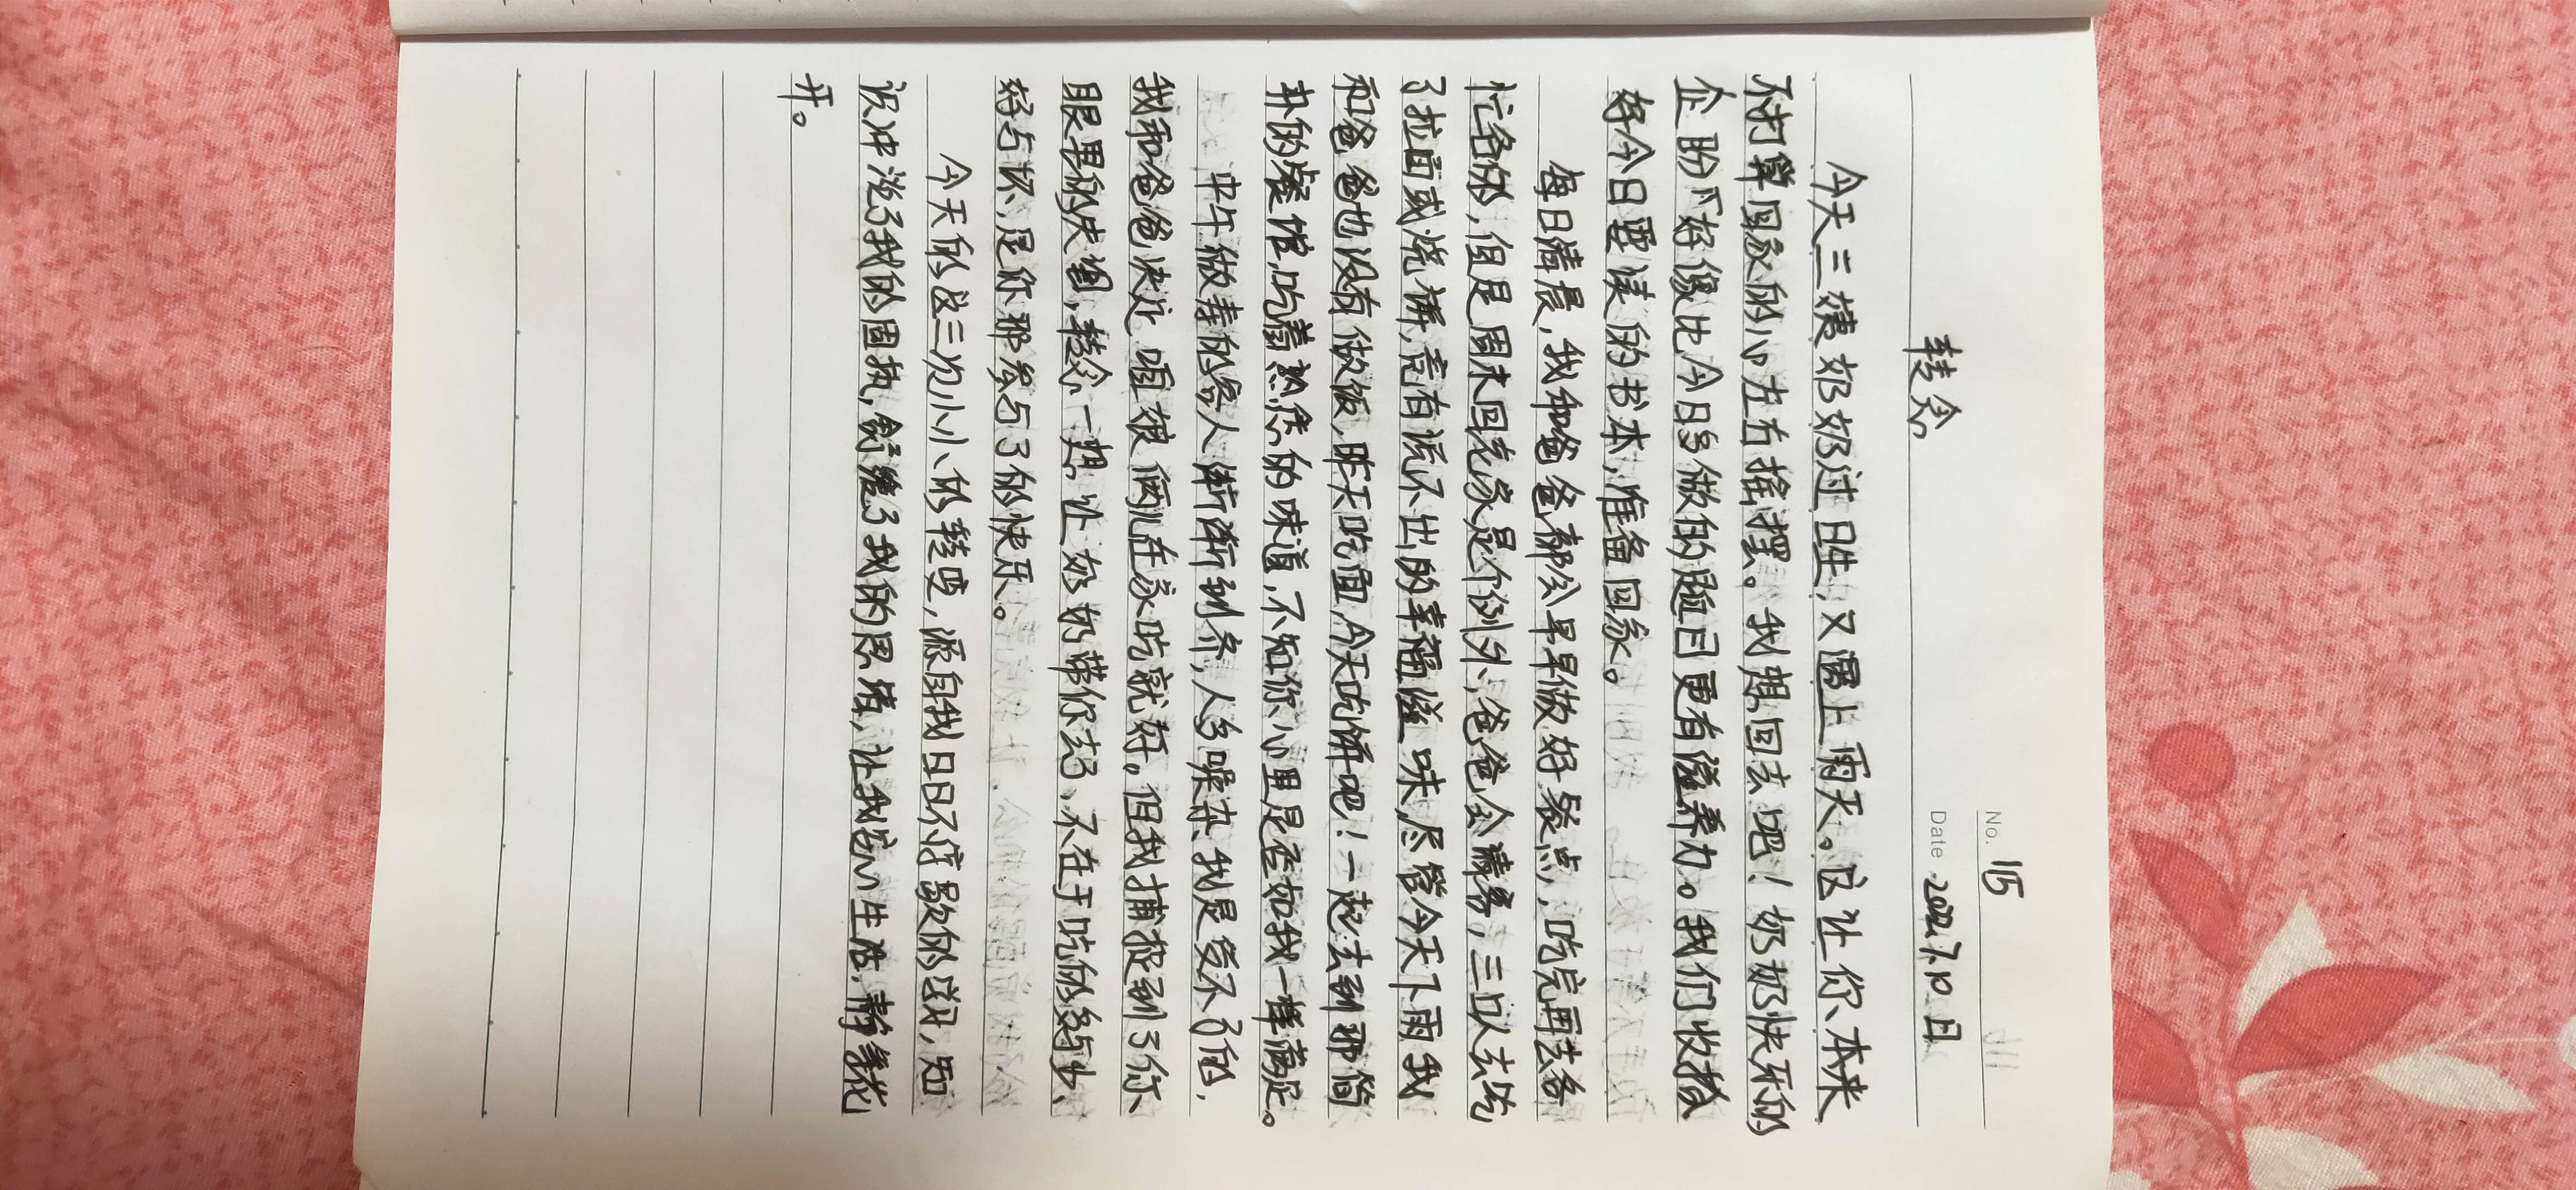 No. 115
Date 2022.7.10日
转念
今天三姨奶奶过日生,又遇上雨天。这让你、本来
不打算回家的心左右摇摆。我想回去吧!奶奶快乐的
企盼下好像比今日多做的题目更有滋养力。我们收拾
好今日要读的书本,准备回家。
每日清晨,我和爸爸都会早早做好餐点,吃完再去各
忙各的,但是周末回老家是个例外,爸爸会请客,三口人去吃
了拉面或烧饼,竟有说不出的幸福滋味,尽管今天下雨我
和爸爸也没有做饭,昨天吃面,今天吃饼吧!一起去到那简
朴的餐馆,吃着熟悉的味道,不知你心里是否如我一样满足。
中午做寿的客人渐渐到齐,人多噪杂、我是受不了的,
我和爸爸决定咱娘俩儿在家吃就好。但我捕捉到了你、
眼里的失望,转念一想让奶奶带你去了、不在于吃的多与少、
好与坏,是你那参与了的快乐。
今天的这三次小小的转变,源自我日日不停歇的学习,知
识冲淡了我的固执,舒缓了我的思绪,让我安心生活,静等花
开。